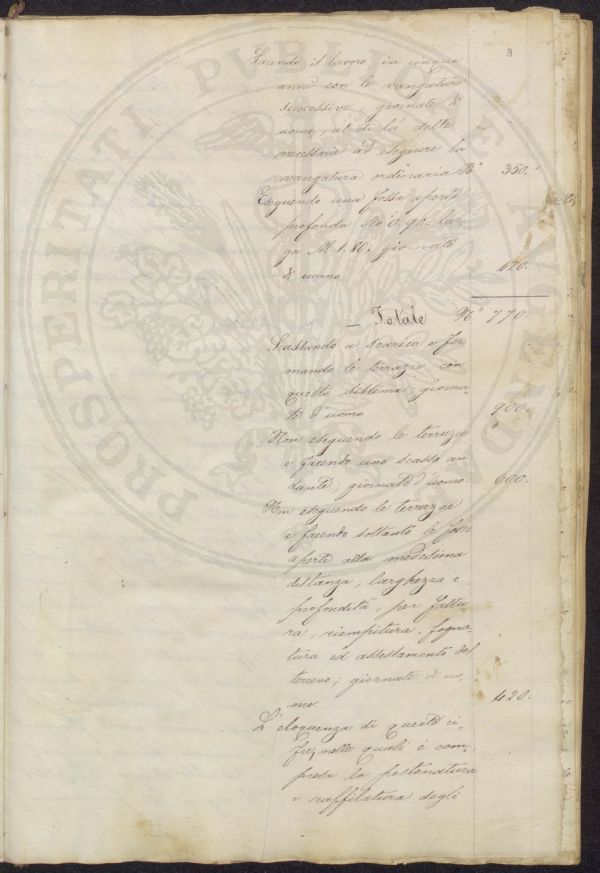 9
Facendo il lavoro in cinque
anni con le vangature
successive, giornate di
uomo, al di là delle
necessarie ad eseguire la
vangatura ordinaria N° 350.
Eseguendo una fossa aperta
profonda M. 0.90. lar-
ga M. 1.50; giornate
di uomo 420.
— Totale N° 770.
Scassando a sterrico e for-
mando le terrazze con
questo sistema; giorna-
te d'uomo 900.
Non eseguendo le terrazze
e facendo uno scasso an-
dante; giornate d'uomo 600.
Non eseguendo le terrazze
e facendo soltanto le fosse
aperte alla medesima
distanza, larghezza e
profondità, per fattu-
ra, riempitura, fogna-
tura ed assestamento del
terreno; giornate di uo-
mo 420.
L'eloquenza di queste ci-
fre, nelle quali è com-
presa la
e raffilatura degli
PROSPERITATI PUBLICAE AUGENDAE